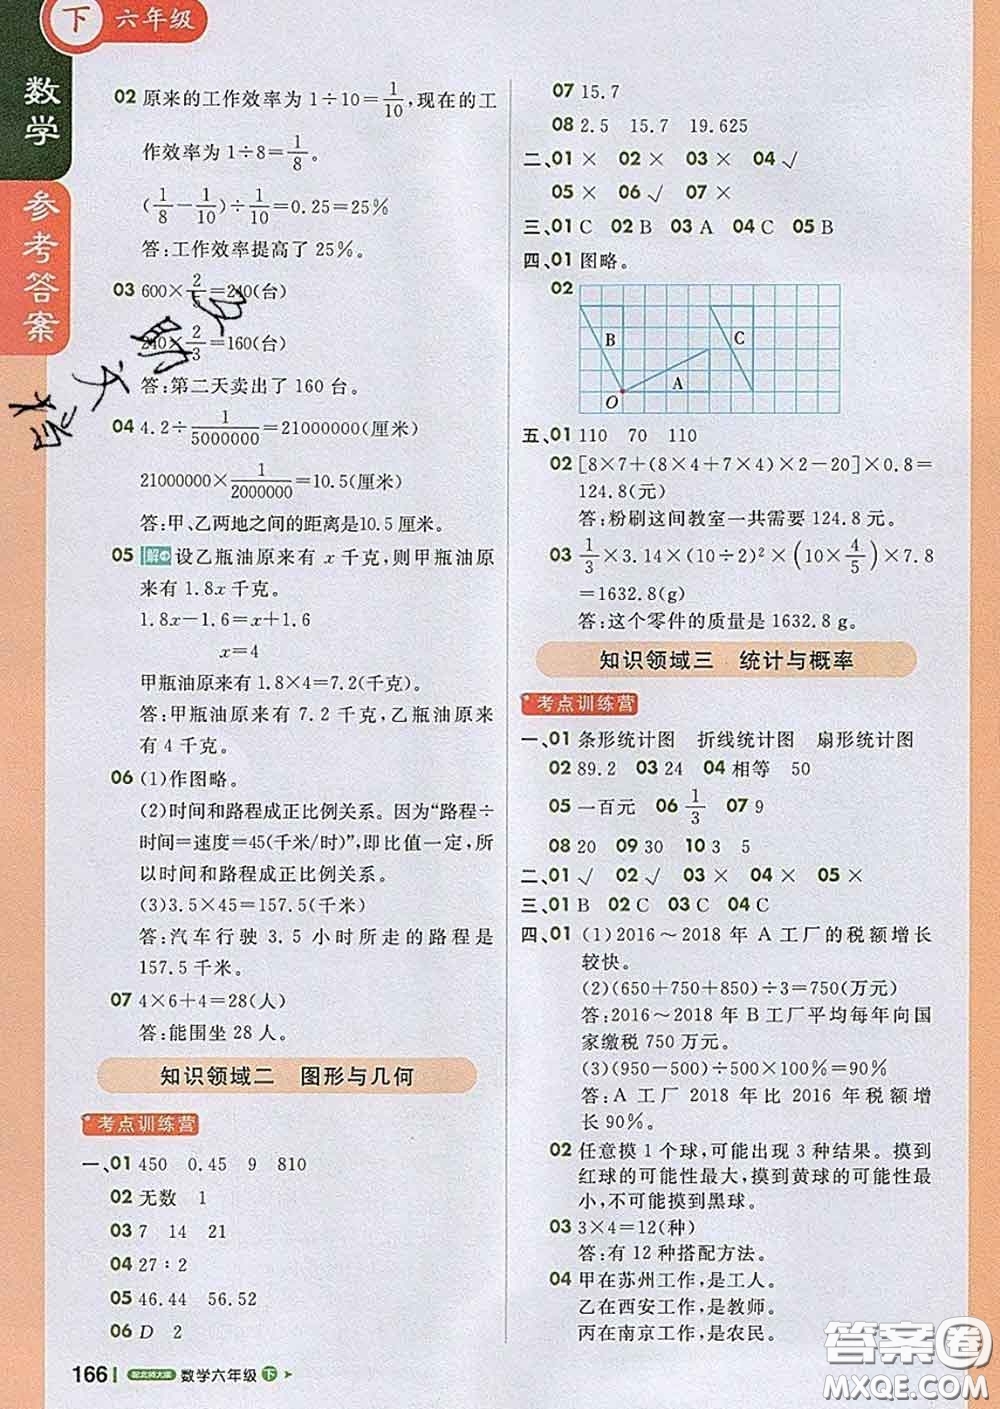 下 六年级
数学
参考答案
02 原来的工作效率为 1÷10=1/10,现在的工
作效率为 1÷8=1/8。
(1/8−1/10)÷1/10=0.25=25%
答:工作效率提高了 25%。
03 600×2/5=240(台)
240×2/3=160(台)
答:第二天卖出了 160 台。
04 4.2÷1/5000000=21000000(厘米)
21000000×1/2000000=10.5(厘米)
答:甲、乙两地之间的距离是10.5 厘米。
05 解 设乙瓶油原来有 x 千克,则甲瓶油原
来有 1.8x 千克。
1.8x−1.6=x+1.6
x=4
甲瓶油原来有 1.8×4=7.2(千克)。
答:甲瓶油原来有 7.2 千克,乙瓶油原来
有 4 千克。
06 (1)作图略。
(2)时间和路程成正比例关系。因为“路程÷
时间=速度=45(千米/时)”,即比值一定,所
以时间和路程成正比例关系。
(3)3.5×45=157.5(千米)
答:汽车行驶 3.5 小时所走的路程是
157.5 千米。
07 4×6+4=28(人)
答:能围坐 28 人。
知识领域二 图形与几何
考点训练营
一、01 450 0.45 9 810
02 无数 1
03 7 14 21
04 27∶2
05 46.44 56.52
06 D 2
07 15.7
08 2.5 15.7 19.625
二、01 × 02 × 03 × 04 √
05 × 06 √ 07 ×
三、01 C 02 B 03 A 04 C 05 B
四、01 图略。
02
B
C
A
O
五、01 110 70 110
02 [8×7+(8×4+7×4)×2−20]×0.8=
124.8(元)
答:粉刷这间教室一共需要 124.8 元。
03 1/3×3.14×(10÷2)²×(10×4/5)×7.8
=1632.8(g)
答:这个零件的质量是 1632.8 g。
知识领域三 统计与概率
考点训练营
一、01 条形统计图 折线统计图 扇形统计图
02 89.2 03 24 04 相等 50
05 一百元 06 1/3 07 9
08 20 09 30 10 3 5
二、01 √ 02 √ 03 × 04 × 05 ×
三、01 B 02 C 03 C 04 C
四、01 (1)2016～2018 年 A 工厂的税额增长
较快。
(2)(650+750+850)÷3=750(万元)
答:2016～2018 年 B 工厂平均每年向国
家缴税 750 万元。
(3)(950−500)÷500×100%=90%
答:A 工厂 2018 年比 2016 年税额增
长 90%。
02 任意摸 1 个球,可能出现 3 种结果。摸到
红球的可能性最大,摸到黄球的可能性最
小,不可能摸到黑球。
03 3×4=12(种)
答:有 12 种搭配方法。
04 甲在苏州工作,是工人。
乙在西安工作,是教师。
丙在南京工作,是农民。
166 配北师大版 数学六年级 下
答案圈
MXQE.COM